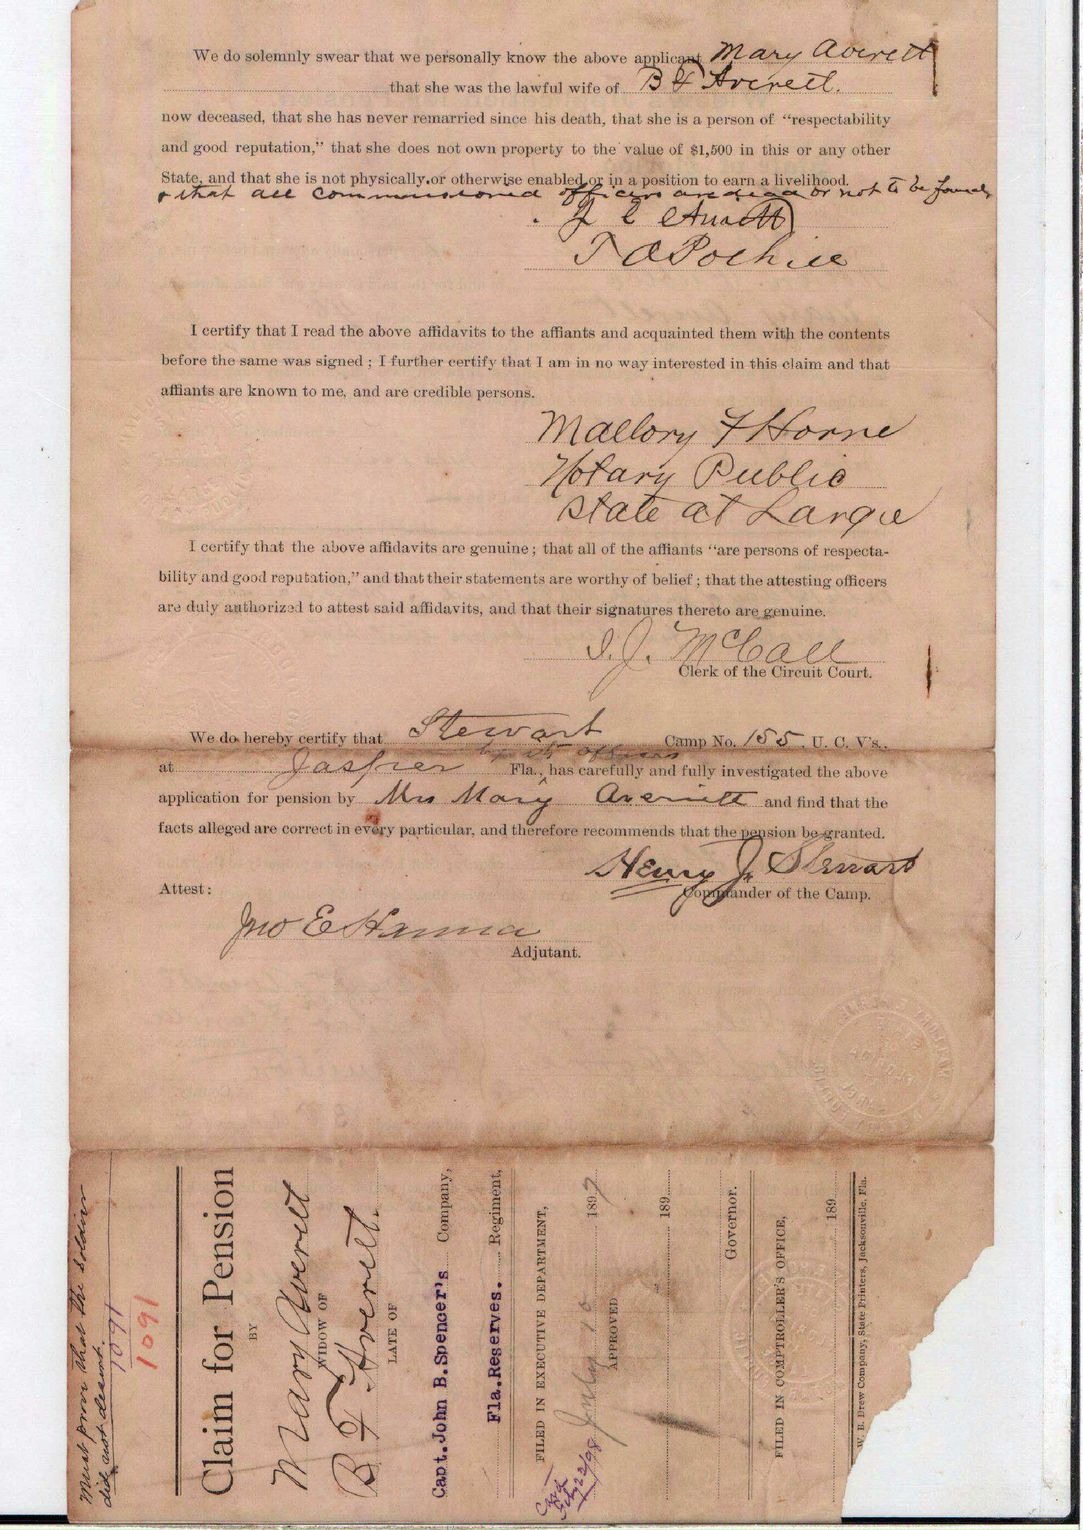 We do solemnly swear that we personally know the above applicant Mary Averett
that she was the lawful wife of B F Averett.
now deceased, that she has never remarried since his death, that she is a person of “respectability
and good reputation,” that she does not own property to the value of $1,500 in this or any other
State, and that she is not physically or otherwise enabled or in a position to earn a livelihood.
& that all commissioned officers are dead or not to be found
I certify that I read the above affidavits to the affiants and acquainted them with the contents
before the same was signed ; I further certify that I am in no way interested in this claim and that
affiants are known to me, and are credible persons.
Mallory F Horne
Notary Public
State at Large
I certify that the above affidavits are genuine ; that all of the affiants “are persons of respecta-
bility and good reputation,” and that their statements are worthy of belief ; that the attesting officers
are duly authorized to attest said affidavits, and that their signatures thereto are genuine.
I. J. McCall
Clerk of the Circuit Court.
We do hereby certify that Stewart Camp No. 155, U. C. V's.,
by its officers
at Jasper Fla., has carefully and fully investigated the above
application for pension by Mrs Mary Averritt and find that the
facts alleged are correct in every particular, and therefore recommends that the pension be granted.
Henry J. Stewart
Commander of the Camp.
Attest :
Jno E Hanna
Adjutant.
Must prove that the soldier
did not desert.
1091
1091
Claim for Pension
BY
Mary Averett
WIDOW OF
B F Averett.
LATE OF
Capt. John B. Spencer's Company,
Fla. Reserves. Regiment,
FILED IN EXECUTIVE DEPARTMENT,
July 10 1897
APPROVED
189
Governor.
FILED IN COMPTROLLER'S OFFICE,
189
W. B. Drew Company, State Printers, Jacksonville, Fla.